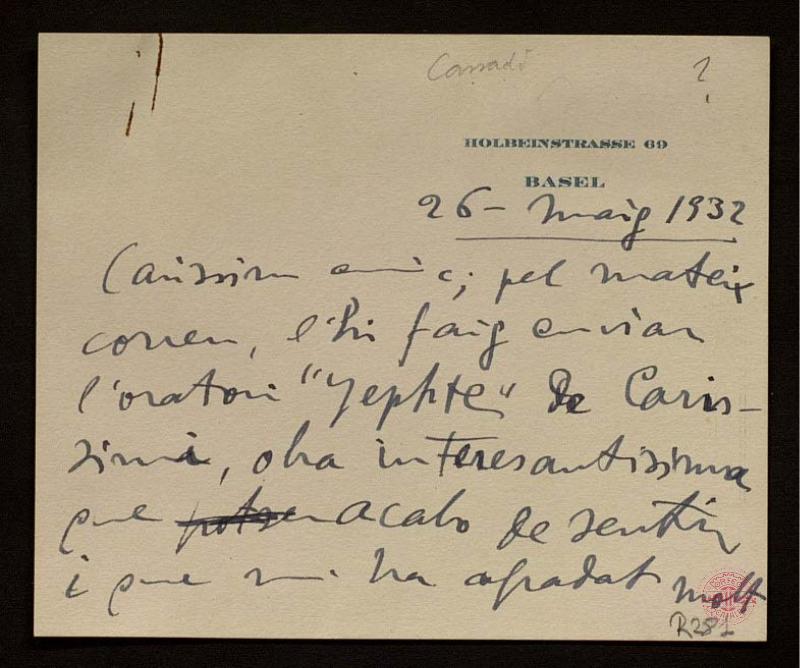 Cassadó ?
HOLBEINSTRASSE 69
BASEL
26 - Maig 1932
Carissim amic; pel mateix
correu, l'hi faig enviar
l'oratori "Jephte" de Caris-
simi, obra interesantisima
que acabo de sentir
i que m'ha agradat molt
R281